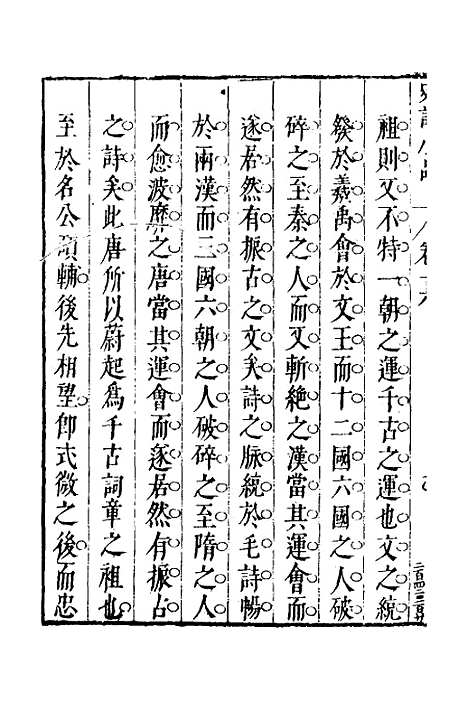 祖則又不特一朝之運千古之運也文之統
發於羲禹會於文王而十二國六國之人破
碎之至秦之人而又斬絕之漢當其運會而
遂居然有振古之文矣詩之脉統於毛詩暢
於兩漢而三國六朝之人破碎之至隋之人
而愈波靡之唐當其運會而遂居然有振古
之詩矣此唐所以蔚起爲千古詞章之祖也
至於名公碩輔後先相望卽式微之後而忠